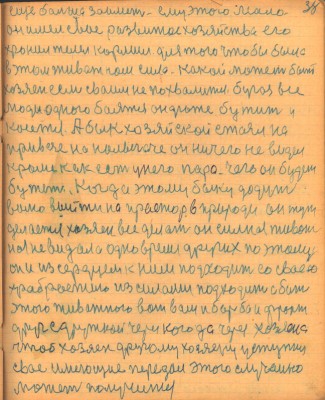 еще больше займет. ему этого мала
он имел свое развитое хозяйства его
хранил и кормил для того чтобы была
в этом живатном сила. какой может быт
хозяен если сваим не похвалит
люди одного баятся он даже бутит и
кости. А бык хозяйской стаял на
привязе на он ничего не видел
кроме как ест у него пара. чего он будит
бутит. Когда этому быку дадут
выйти на простор в природи он тут
делает хозяен все делат он силнал живот
но не видала одно время других по этому
он и из сердцем к ним подходит со своего
храбрастию из силами подходит а быт
этого живатного вот вам и барба и
друг з дружкой через кого да через хозяена
чтоб хозяен другому хозяену уступил
свое имеющие передом этого случайно
может получит